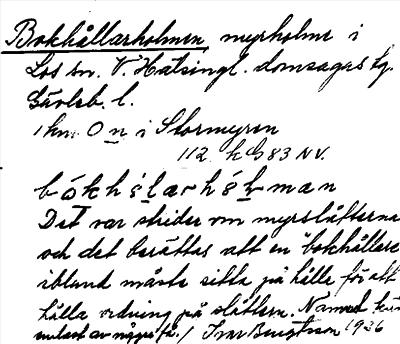 Bokhållarholmen, myrholme i
Los sn. V. Hälsingl. domsagas tg.
Gävleb. l.
1 km O n i Stormyren
112 k G 83 NV.
bókhålarhólman
Det var strider om myrslåtterna
och det berättas att en "bokhållare
ibland måste sitta på hålle för att
hålla ordning på slåttern. Namnet
endast av några få./ Ivar Bengtsson 1926